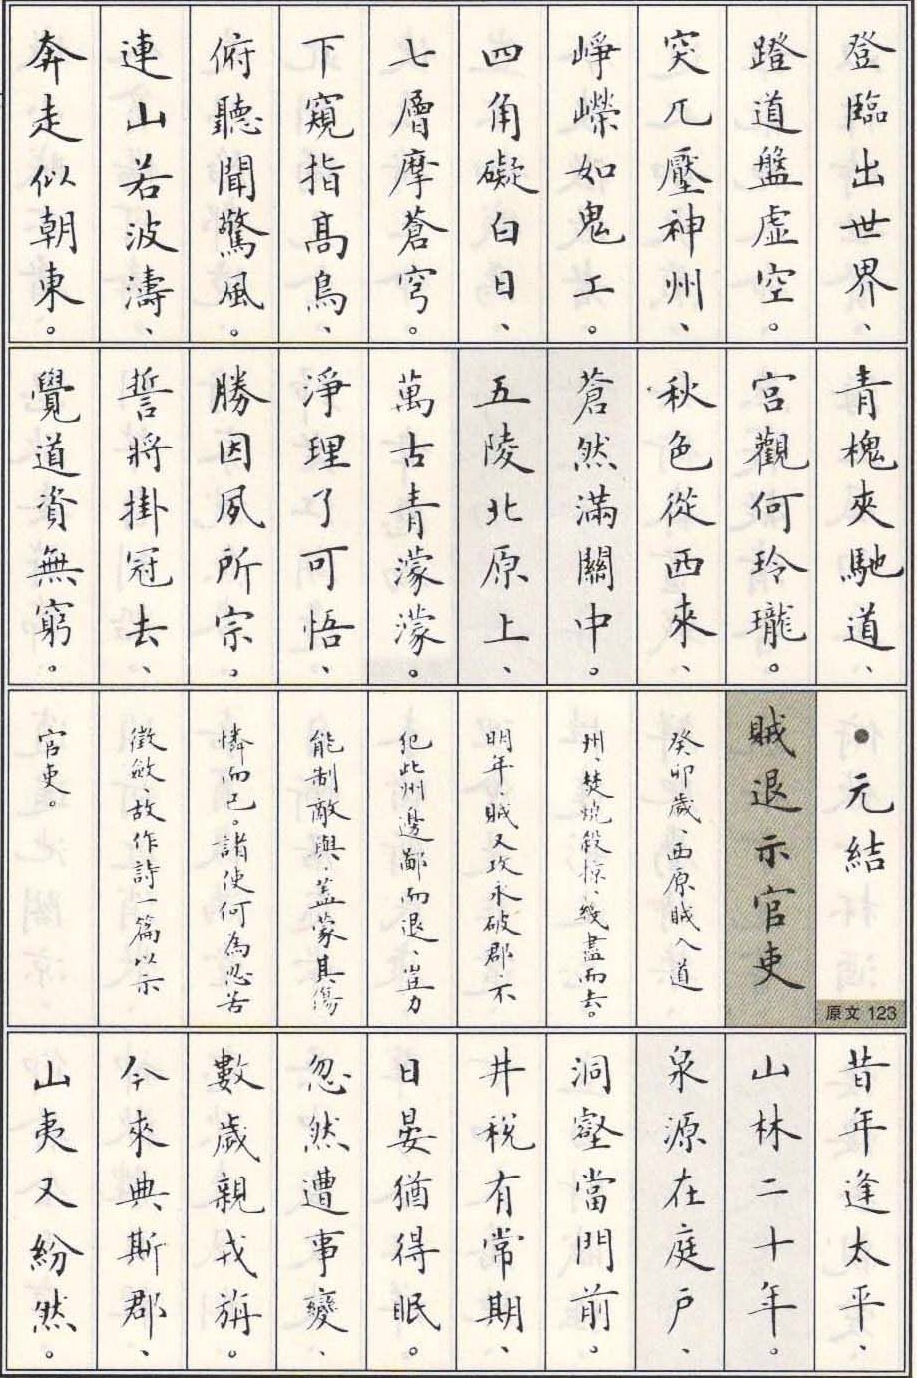 登臨出世界、
蹬道盤虛空。
突兀壓神州、
崢嶸如鬼工。
四角礙白日、
七層摩蒼穹。
下窺指高鳥、
俯聽聞驚風。
連山若波濤、
奔走似朝東。
青槐夾馳道、
宮觀何玲瓏。
秋色從西來、
蒼然滿關中。
五陵北原上、
萬古青濛濛。
淨理了可悟、
勝因夙所宗。
誓將掛冠去、
覺道資無窮。
●元結
原文 123
賊退示官吏
癸卯歲、西原賊入道
州、焚燒殺掠、幾盡而去。
明年、賊又攻永破郡、不
犯此州邊鄙而退、豈力
能制敵與、蓋蒙其傷
憐而已。諸使何為忍苦
徵斂、故作詩一篇以示
官吏。
昔年逢太平、
山林二十年。
泉源在庭戶、
洞壑當門前。
井稅有常期、
日晏猶得眠。
忽然遭事變、
數歲親戎旃。
今來典斯郡、
山夷又紛然。